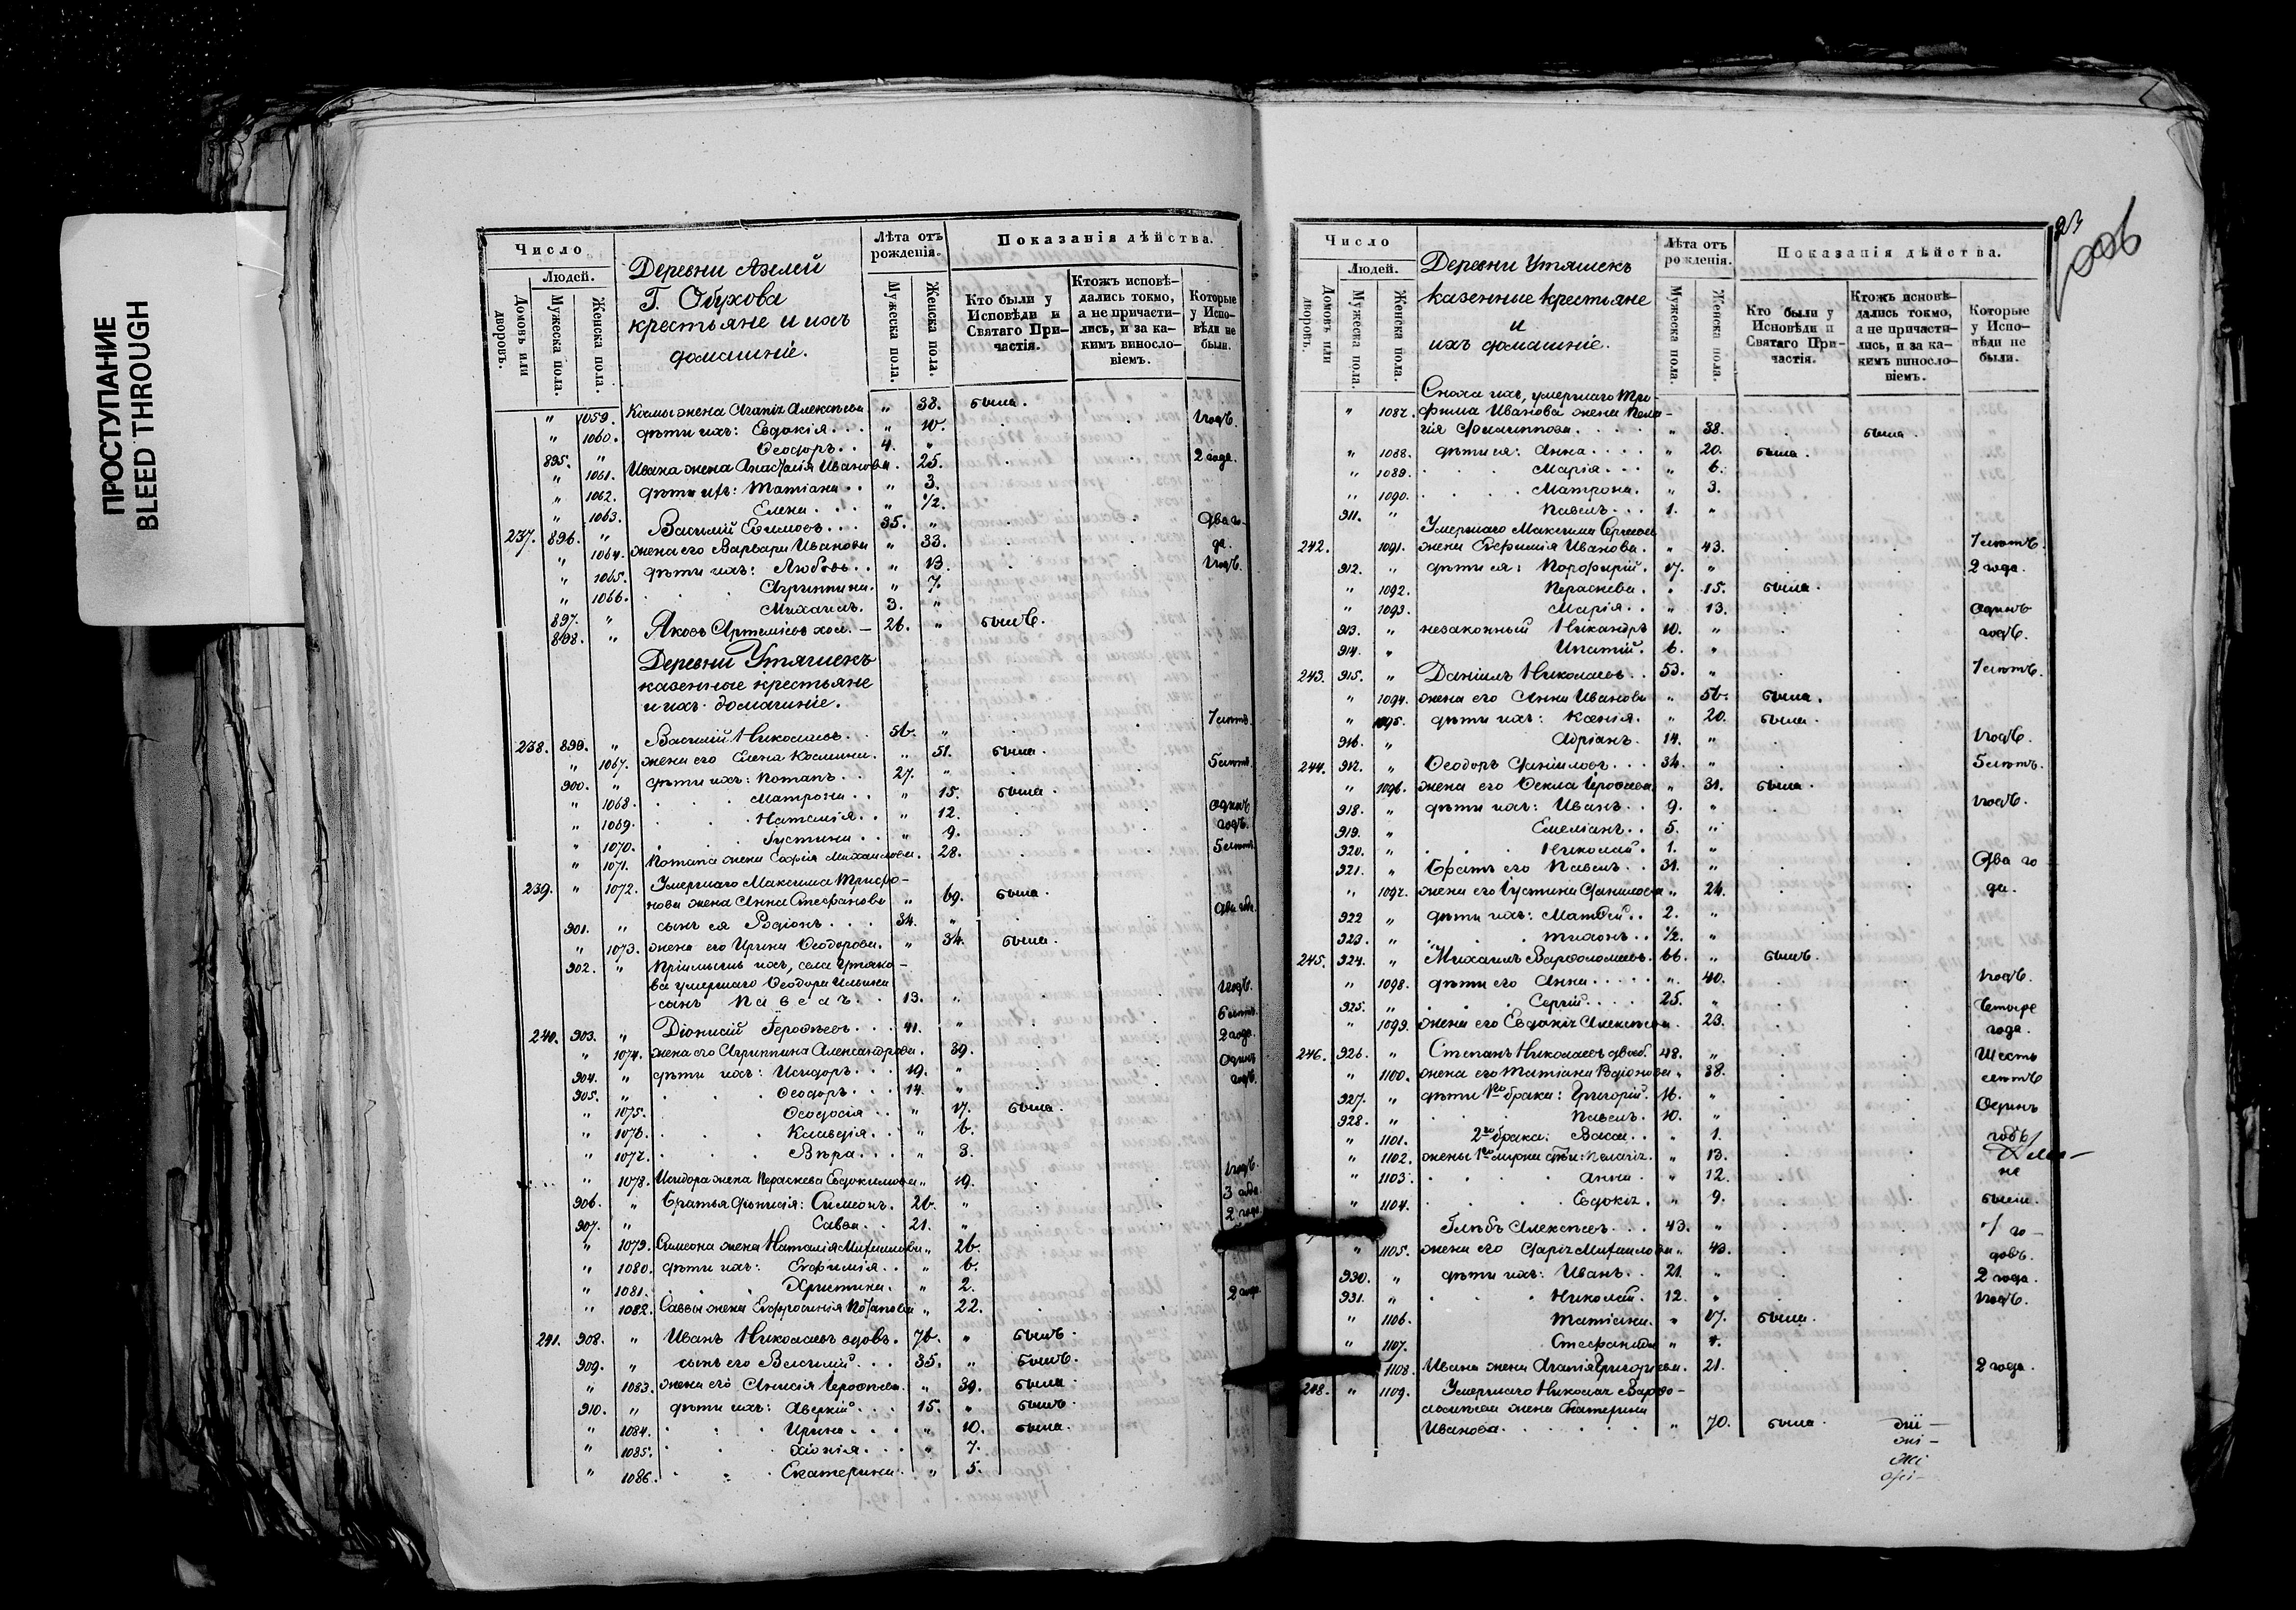 ПРОСТУПАНИЕ
BLEED THROUGH
Число
Людей.
Домовъ или дворовъ.
Мужеска пола.
Женска пола.
Деревни
Г. Обухова
крестьяне и ихъ
домашніе.
Лѣта отъ рожденія.
Мужеска пола.
Женска пола.
Показанія дѣйства.
Кто были у Исповѣди и Святаго Причастія.
Ктожъ исповѣдались токмо, а не причастились, и за какимъ винословіемъ.
Которые у Исповѣди не были.
" 1059. жена Агапія Алексѣева " 38. была.
" 1060. дѣти ихъ: Евдокія " 10. 1 годъ.
895. " Ѳеодоръ 4. "
" 1061. Ивана жена Анастасія Иванова " 25. 2 года.
" 1062. дѣти ихъ: Татіана " 3.
" 1063. Елена " 1/2.
237. 896. " Василій Ефимовъ 35. " Два го-
" 1064. жена его Варвара Иванова " 33. да.
" 1065. дѣти ихъ: Любовь " 13. 1 годъ.
" 1066. Агриппина. " 7.
897. " Михаилъ. 3. "
898. " Яковъ Артеміевъ хол. 26. " былъ.
Деревни Утяшекъ
казенные крестьяне
и ихъ домашніе.
238. 899. " Василій Николаевъ. 56. " 7 лѣтъ.
" 1067. жена его Елена Космина. " 51. была.
900. " дѣти ихъ: Потапъ 27. " 5 лѣтъ.
" 1068. Матрона " 15. была.
" 1069. Наталія " 12. одинъ
" 1070. Іустина " 9. годъ.
" 1071. Потапа жена Софія Михаилова. " 28. 5 лѣтъ.
239. " 1072. Умершаго Максима Трифо-
нова жена Анна Стефанова " 69. была.
901. " сынъ ея Родіонъ 34. " два года.
" 1073. жена его Ирина Ѳеодорова. " 34. была.
902. " Пріимышъ ихъ, села
ва умершаго Ѳеодора Ильина
сынъ Павелъ. 13. " 1 годъ.
240. 903. " Діонисій Іероѳеевъ 41. " 6 лѣтъ.
" 1074. жена его Агриппина Александрова. " 39. 2 года.
904. " дѣти ихъ: Исидоръ 19. " Одинъ
905. " Ѳеодоръ 14. " годъ.
" 1075. Ѳеодосія " 17. была.
" 1076. Клавдія " 6.
" 1077. Вѣра " 3.
" 1078. Исидора жена Параскева Евдокимова " 19. 1 годъ.
906. " Братья Діонисія: Симеонъ. 26. " 3 года.
907. " Савва 21. " 2 года.
" 1079. Симеона жена Наталія Михаилова " 26.
" 1080. дѣти ихъ: Евфимія " 6.
" 1081. Христина. " 2.
" 1082. Саввы жена Евфросинія Потапова " 22. 2 года.
241. 908. " Иванъ Николаевъ вдовъ. 76. " былъ.
909. " сынъ его Василій 35. " былъ.
" 1083. жена его Анисія Іероѳеева. " 39. была.
910. " дѣти ихъ: Аверкій 15. " былъ.
" 1084. Ирина " 10. была.
" 1085. Хіонія " 7.
" 1086. Екатерина. " 5.
Число
Людей.
Домовъ или дворовъ.
Мужеска пола.
Женска пола.
Деревни Утяшекъ
казенные крестьяне
и
ихъ домашніе.
Лѣта отъ рожденія.
Мужеска пола.
Женска пола.
Показанія дѣйства.
Кто были у Исповѣди и Святаго Причастія.
Ктожъ исповѣдались токмо, а не причастились, и за какимъ винословіемъ.
Которые у Исповѣди не были.
Сноха ихъ, умершаго Три-
" 1087. фона Иванова жена Пела-
гія Филиппова " 38. была.
" 1088. дѣти ея: Анна " 20. была.
" 1089. Марія " 6.
" 1090. Матрона. " 3.
911. " Павелъ 1. "
Умершаго Максима Сергѣева
242. 1091. жена Евфимія Иванова. " 43. 7 лѣтъ.
912. " дѣти ея: Порфирій. 17. " 2 года.
" 1092. Параскева. " 15. была.
" 1093. Марія " 13. Одинъ
913. " незаконный Никандръ 10. " годъ.
914. " Ипатій. 6. "
243. 915. " Даніилъ Николаевъ 53. " 7 лѣтъ.
" 1094. жена его Анна Иванова " 56. была.
" 1095. дѣти ихъ: Ксенія. " 20. была.
916. " Адріанъ. 14. " 1 годъ.
244. 917. " Ѳеодоръ Даніиловъ 34. " 5 лѣтъ.
" 1096. жена его Ѳекла Іероѳеева. " 31. была.
918. " дѣти ихъ: Иванъ 9. " 1 годъ.
919. " Емеліанъ 5. "
920. " Николай. 1. "
921. " Братъ его Павелъ 31. " Два го
" 1097. жена его Іустина Данилова " 24. да.
922 " дѣти ихъ: Матѳей 2. "
923. " Тихонъ 1/2. "
245. 924. " Михаилъ Варѳоломеевъ. 66. " былъ.
" 1098. дѣти его Анна " 40. 1 годъ.
925. " Сергій 25. " Четыре
" 1099. жена его Евдокія Алексѣева. " 23. года.
246. 926. " Степанъ Николаевъ 48. " Шесть
" 1100. жена его Татіана Родіонова " 38. лѣтъ
927. " дѣти 1го брака: Григорій. 16. " Одинъ
928. " Павелъ. 10. " годъ
" 1101. 2го брака: Васса " 1.
" 1102. жены 1го дѣти: Пелагія. " 13. не
" 1103. Анна " 12. были.
" 1104. Евдокія. " 9.
Глѣбъ Алексѣевъ 43. " 7 го-
" 1105. жена его Дарія Михаилова " 43. довъ.
930. " дѣти ихъ: Иванъ 21. " 2 года.
931. " Николай. 12. " 1 годъ.
" 1106. Татіана. " 17. была.
" 1107. Стефанида "
1108. Ивана жена Агапія Григорьева. 21. 2 года.
248. " 1109. Умершаго Николая Варѳо-
ломеева жена Екатерина
Иванова " 70. была.